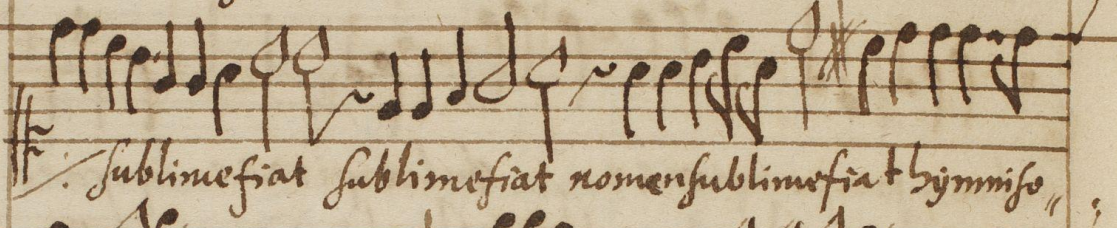 sublime fiat sublime fiat nomen sublime fiat hymni so„